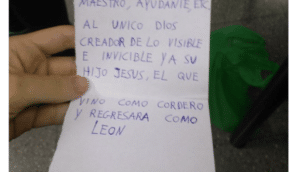 MAESTRO, AYUDANTE, ETC
AL UNICO DIOS
CREADOR DE LO VISIBLE
E INVICIBLE Y A SU
HIJO JESUS. EL QUE
VINO COMO CORDERO
Y REGRESARA COMO
LEON